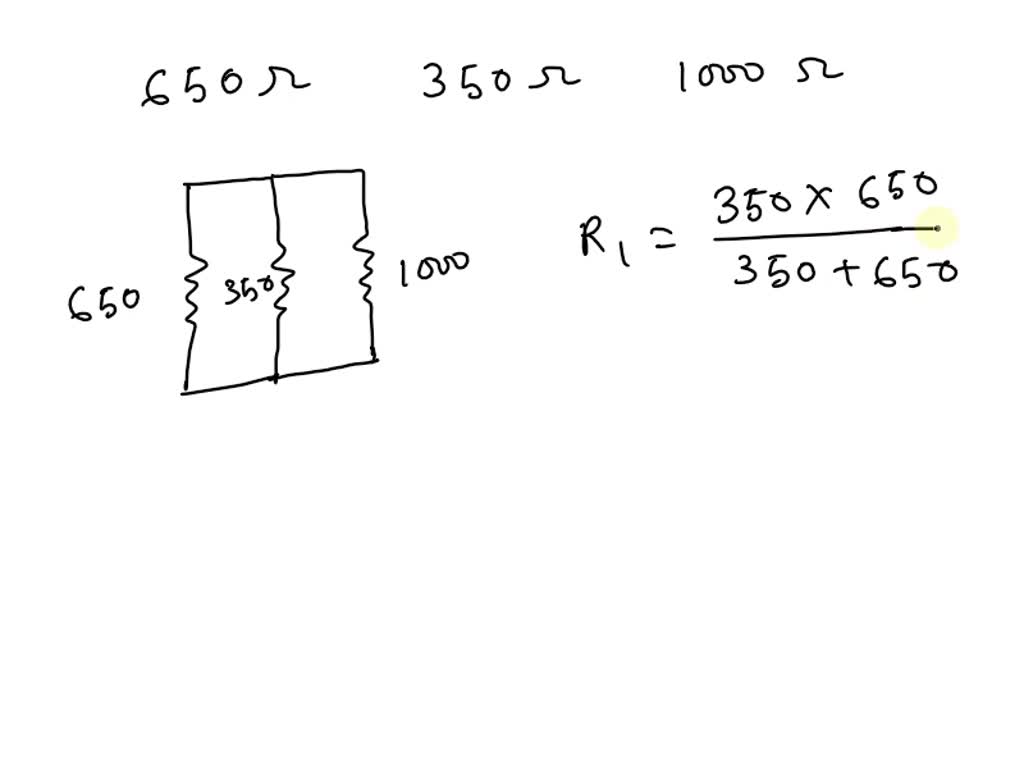 650Ω 350Ω 1000 Ω
650 350 1000
R₁ = 350 x 650
350 + 650